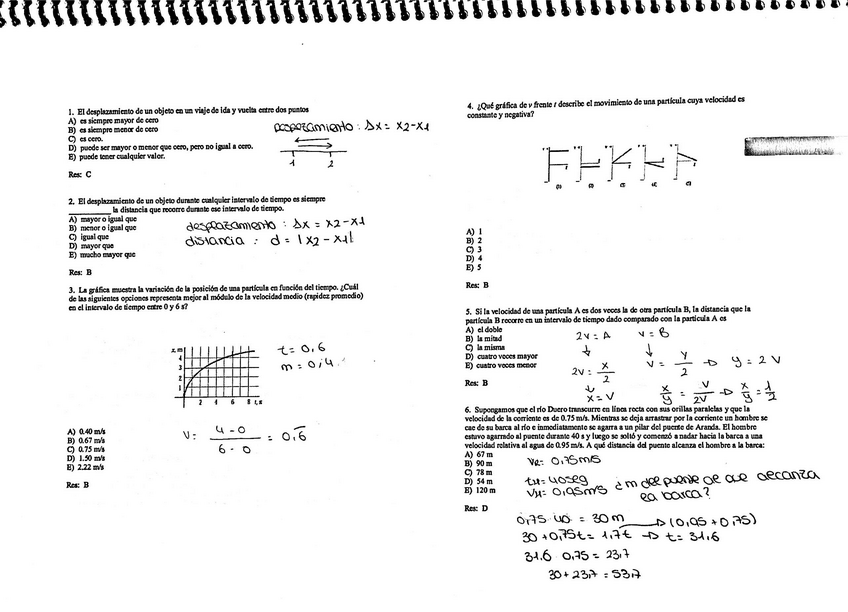 1. El desplazamiento de un objeto en un viaje de ida y vuelta entre dos puntos
A) es siempre mayor de cero
B) es siempre menor de cero
C) es cero.
D) puede ser mayor o menor que cero, pero no igual a cero.
E) puede tener cualquier valor.
: Δx = x2-x1
1 2
Res: C
2. El desplazamiento de un objeto durante cualquier intervalo de tiempo es siempre
__________ la distancia que recorre durante ese intervalo de tiempo.
A) mayor o igual que
B) menor o igual que
C) igual que
D) mayor que
E) mucho mayor que
desplazamiento : Δx = x2-x1
distancia : d = |x2-x1|
Res: B
3. La gráfica muestra la variación de la posición de una partícula en función del tiempo. ¿Cuál
de las siguientes opciones representa mejor al módulo de la velocidad medio (rapidez promedio)
en el intervalo de tiempo entre 0 y 6 s?
x, m
4
3
2
1
2 4 6 8 t, s
t=0,6
m=0,4
A) 0.40 m/s
B) 0.67 m/s
C) 0.75 m/s
D) 1.50 m/s
E) 2.22 m/s
V: 4-0 / 6-0 = 0,6
Res: B
4. ¿Qué gráfica de v frente t describe el movimiento de una partícula cuya velocidad es
constante y negativa?
(1) (2) (3) (4) (5)
A) 1
B) 2
C) 3
D) 4
E) 5
Res: B
5. Si la velocidad de una partícula A es dos veces la de otra partícula B, la distancia que la
partícula B recorre en un intervalo de tiempo dado comparado con la partícula A es
A) el doble
B) la mitad
C) la misma
D) cuatro veces mayor
E) cuatro veces menor
2v = A v = B
↓ ↓
2v = x/2 v = y/2 → y = 2v
↓
x = v x/y = v/2v → x/y = 1/2
Res: B
6. Supongamos que el río Duero transcurre en línea recta con sus orillas paralelas y que la
velocidad de la corriente es de 0.75 m/s. Mientras se deja arrastrar por la corriente un hombre se
cae de su barca al río e inmediatamente se agarra a un pilar del puente de Aranda. El hombre
estuvo agarrado al puente durante 40 s y luego se soltó y comenzó a nadar hacia la barca a una
velocidad relativa al agua de 0.95 m/s. A qué distancia del puente alcanza el hombre a la barca:
A) 67 m
B) 90 m
C) 78 m
D) 54 m
E) 120 m
VR= 0,75m/s
tH= 40seg
VH= 0,95m/s
¿m del puente de que alcanza
la barca?
Res: D
0,75 · 40 = 30m → (0,95+0,75)
30+0,75t = 1,7t → t= 31,6
31,6 · 0,75 = 23,7
30+23,7 = 53,7